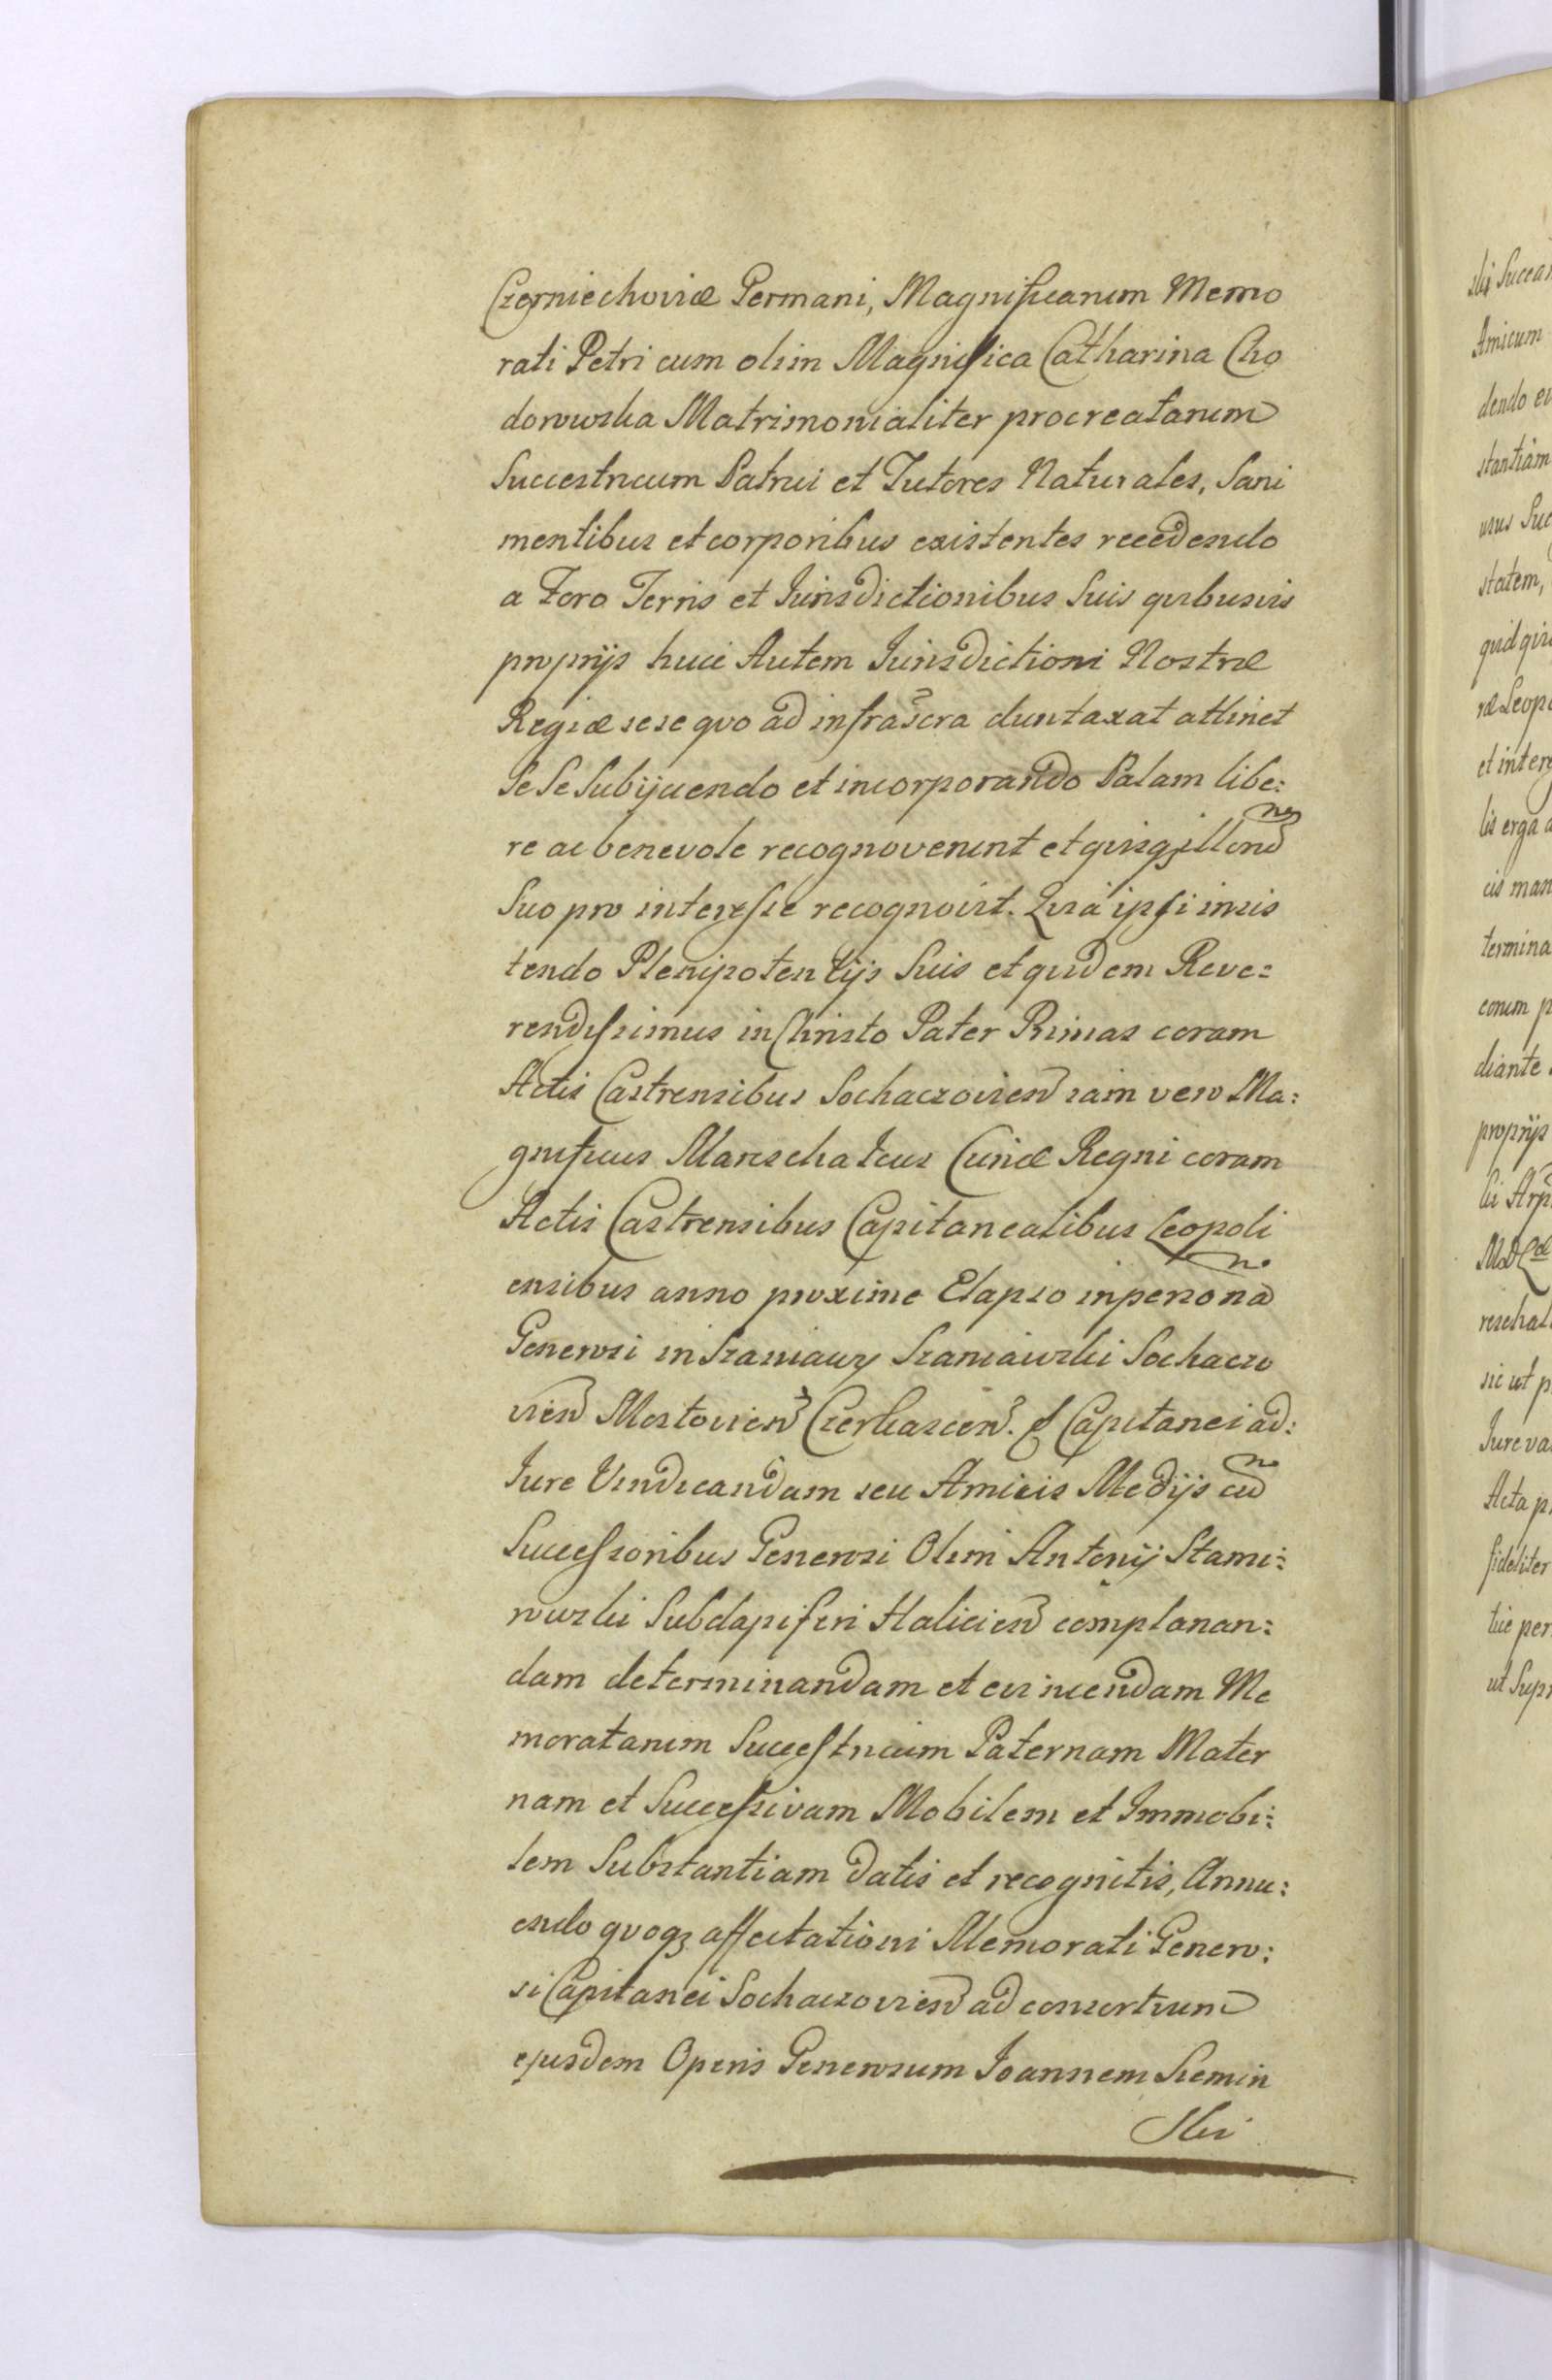 Czerniechoviæ Germani, Magnificarum Memo
rati Petri cum olim Magnifica Catharina Cho
dorowska Matrimonialiter procreatarum
Successtricum Patrui et Tutores Naturales, Sani
mentibus et corporibus existentes recedendo
a Foro Terris et Jurisdictionibus Suis quibusvis
proprijs huic Autem Jurisdictioni Nostræ
Regiæ sese quo ad infrascra duntaxat attinet
Se Se Subijciendo et incorporando Palam libe:
re ac benevole recognoverunt et quisq illorum
Suo pro interesse recognovit. Quia ipsi insis
tendo Plenipotentijs Suis et quidem Reve:
rendissimus in Christo Pater Primas coram
Actis Castrensibus Sochaczovien iam vero Ma:
gnificus Mareschalcus Curiæ Regni coram
Actis Castrensibus Capitanealibus Leopoli
ensibus anno proxime Elapso in persona
Generosi in Szaniawy Szaniawski Sochaczo
vien Mostovien Czerkascen. & Capitanei ad:
Jure Vindicandam seu Amicis Medijs cum
Successoribus Generosi Olim Antonij Stami:
rowski Subdapiferi Halicien complanan:
dam determinandam et evincendam Me
moratarum Successtricum Paternam Mater
nam et Successivam Mobilem et Immobi:
lem Substantiam datis et recognitis, Annu:
endo quoq affectationi Memorati Genero:
si Capitanei Sochaczovien ad consortium
ejusdem Operis Generosum Joannem Siemin
Ski
slij Succes
Amicum
dendo
stantiam
usus Suc
statem,
quid
ræ Leopo
et inter
lis erga
cis man
termina
eorum p
diante
proprijs
reschal
sic ut p
Jure va
Acta p
fideliter
tuc per
ut Supr